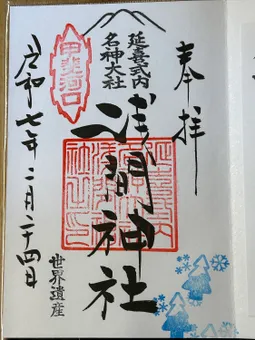 奉拝
延喜式内
名神大社
浅間神社
甲斐河口
世界遺産
令和七年二月二十四日